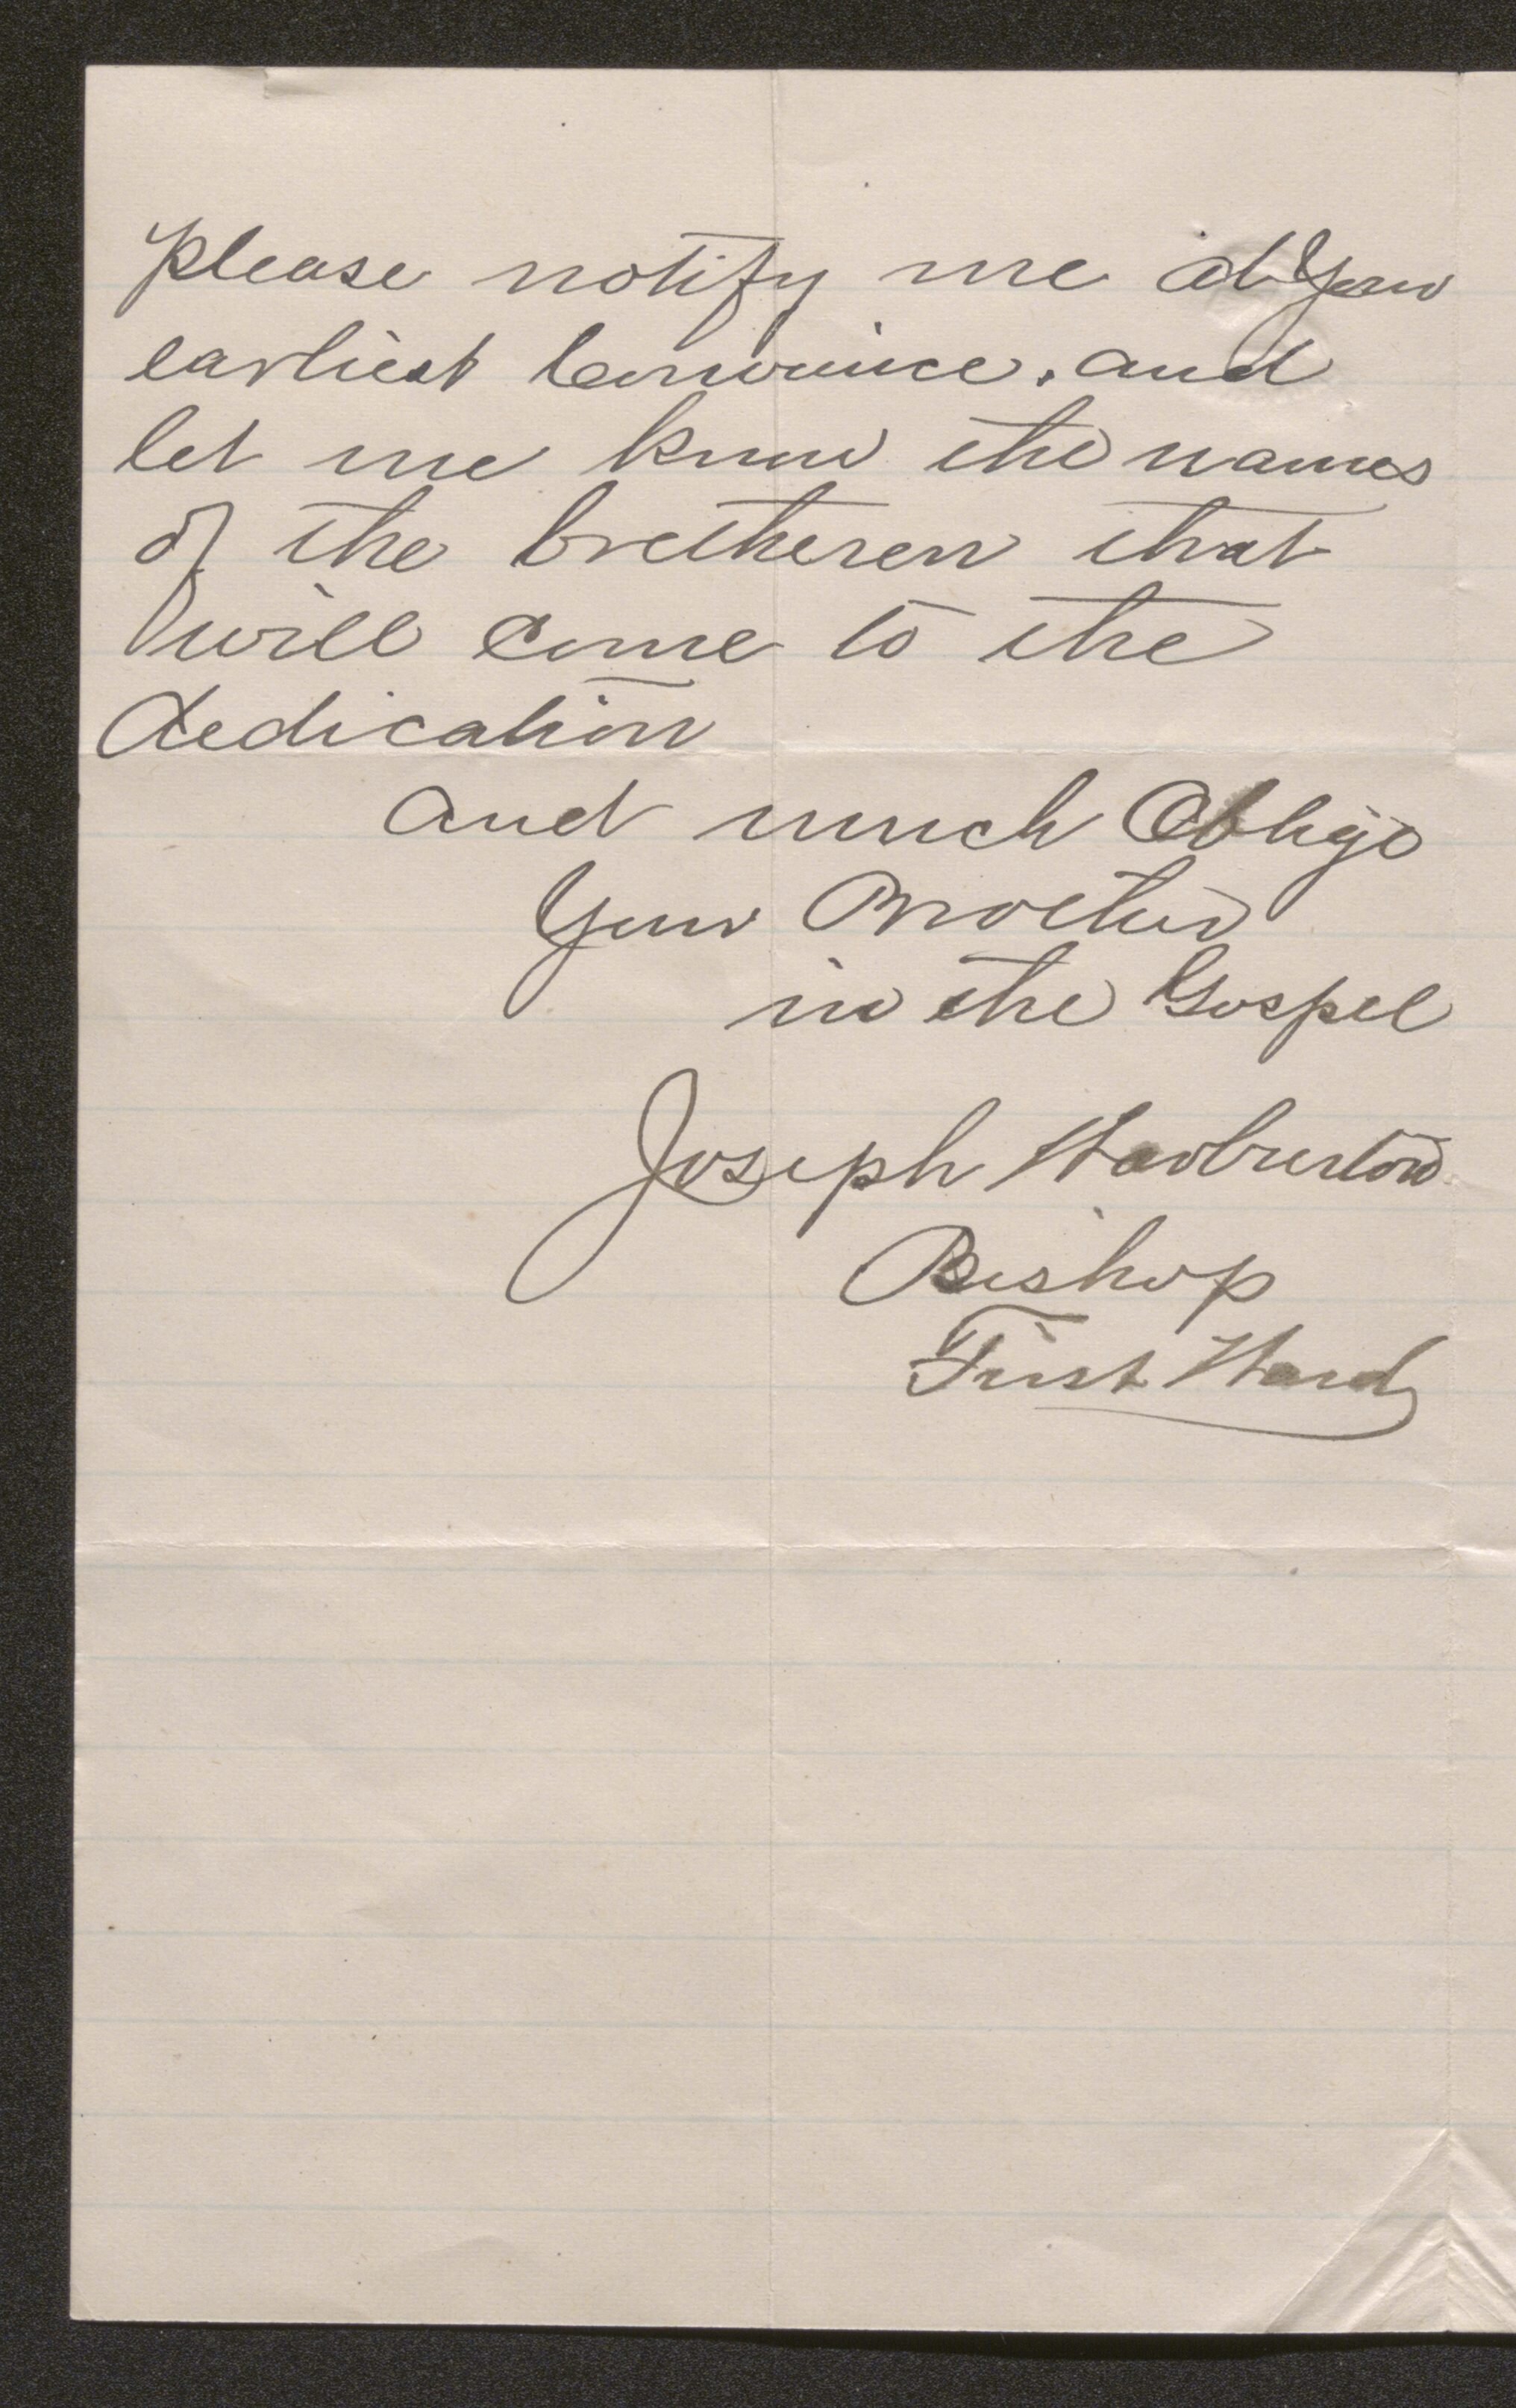 Please notify me at Your
earliest Convenince. and
let me know the names
of the bretheren that
will come to the
dedication
and much Oblige
Your Brother
in the Gospel
Joseph Warburton
Bishop
First Ward